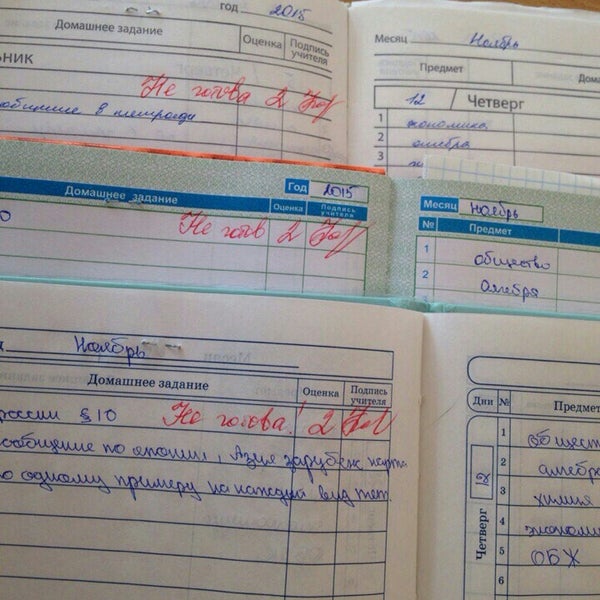 год 2015
Домашнее задание
Оценка
Подпись учителя
НИК
Не готова 2
сообщение в тетради
Месяц Ноябрь
Предмет
Дома
12 / Четверг
1 экономика
2 алгебра
3
Год 2015
Домашнее задание
Оценка
Подпись учителя
Не готов 2
Месяц Ноябрь
№ Предмет
1 общество
2 алгебра
3
Ноябрь
Домашнее задание
Оценка
Подпись учителя
россии § 10 Не готова! 2
сообщение по японии, Азия зарубеж. карта
по одному примеру на каждый вид
Дни № Предмет
Четверг
1 общест
2 алгебра
3 химия
4 эконом
5 ОБЖ
6